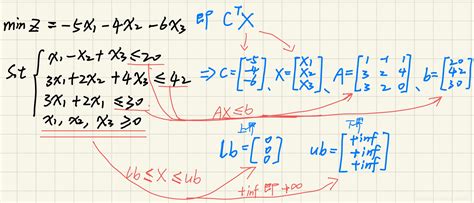 min Z = -5x₁ -4x₂ -6x₃ 即 CᵀX
s.t { x₁ - x₂ + x₃ ≤ 20
3x₁ + 2x₂ + 4x₃ ≤ 42
3x₁ + 2x₂ ≤ 30
x₁, x₂, x₃ ≥ 0
⇒ C = [-5 -4 -6]、X = [x₁ x₂ x₃]、A = [1 -1 1; 3 2 4; 3 2 0]、b = [20 42 30]
AX ≤ b
上界 下界
lb = [0 0 0] ub = [+inf +inf +inf]
lb ≤ X ≤ ub
+inf 即 +∞